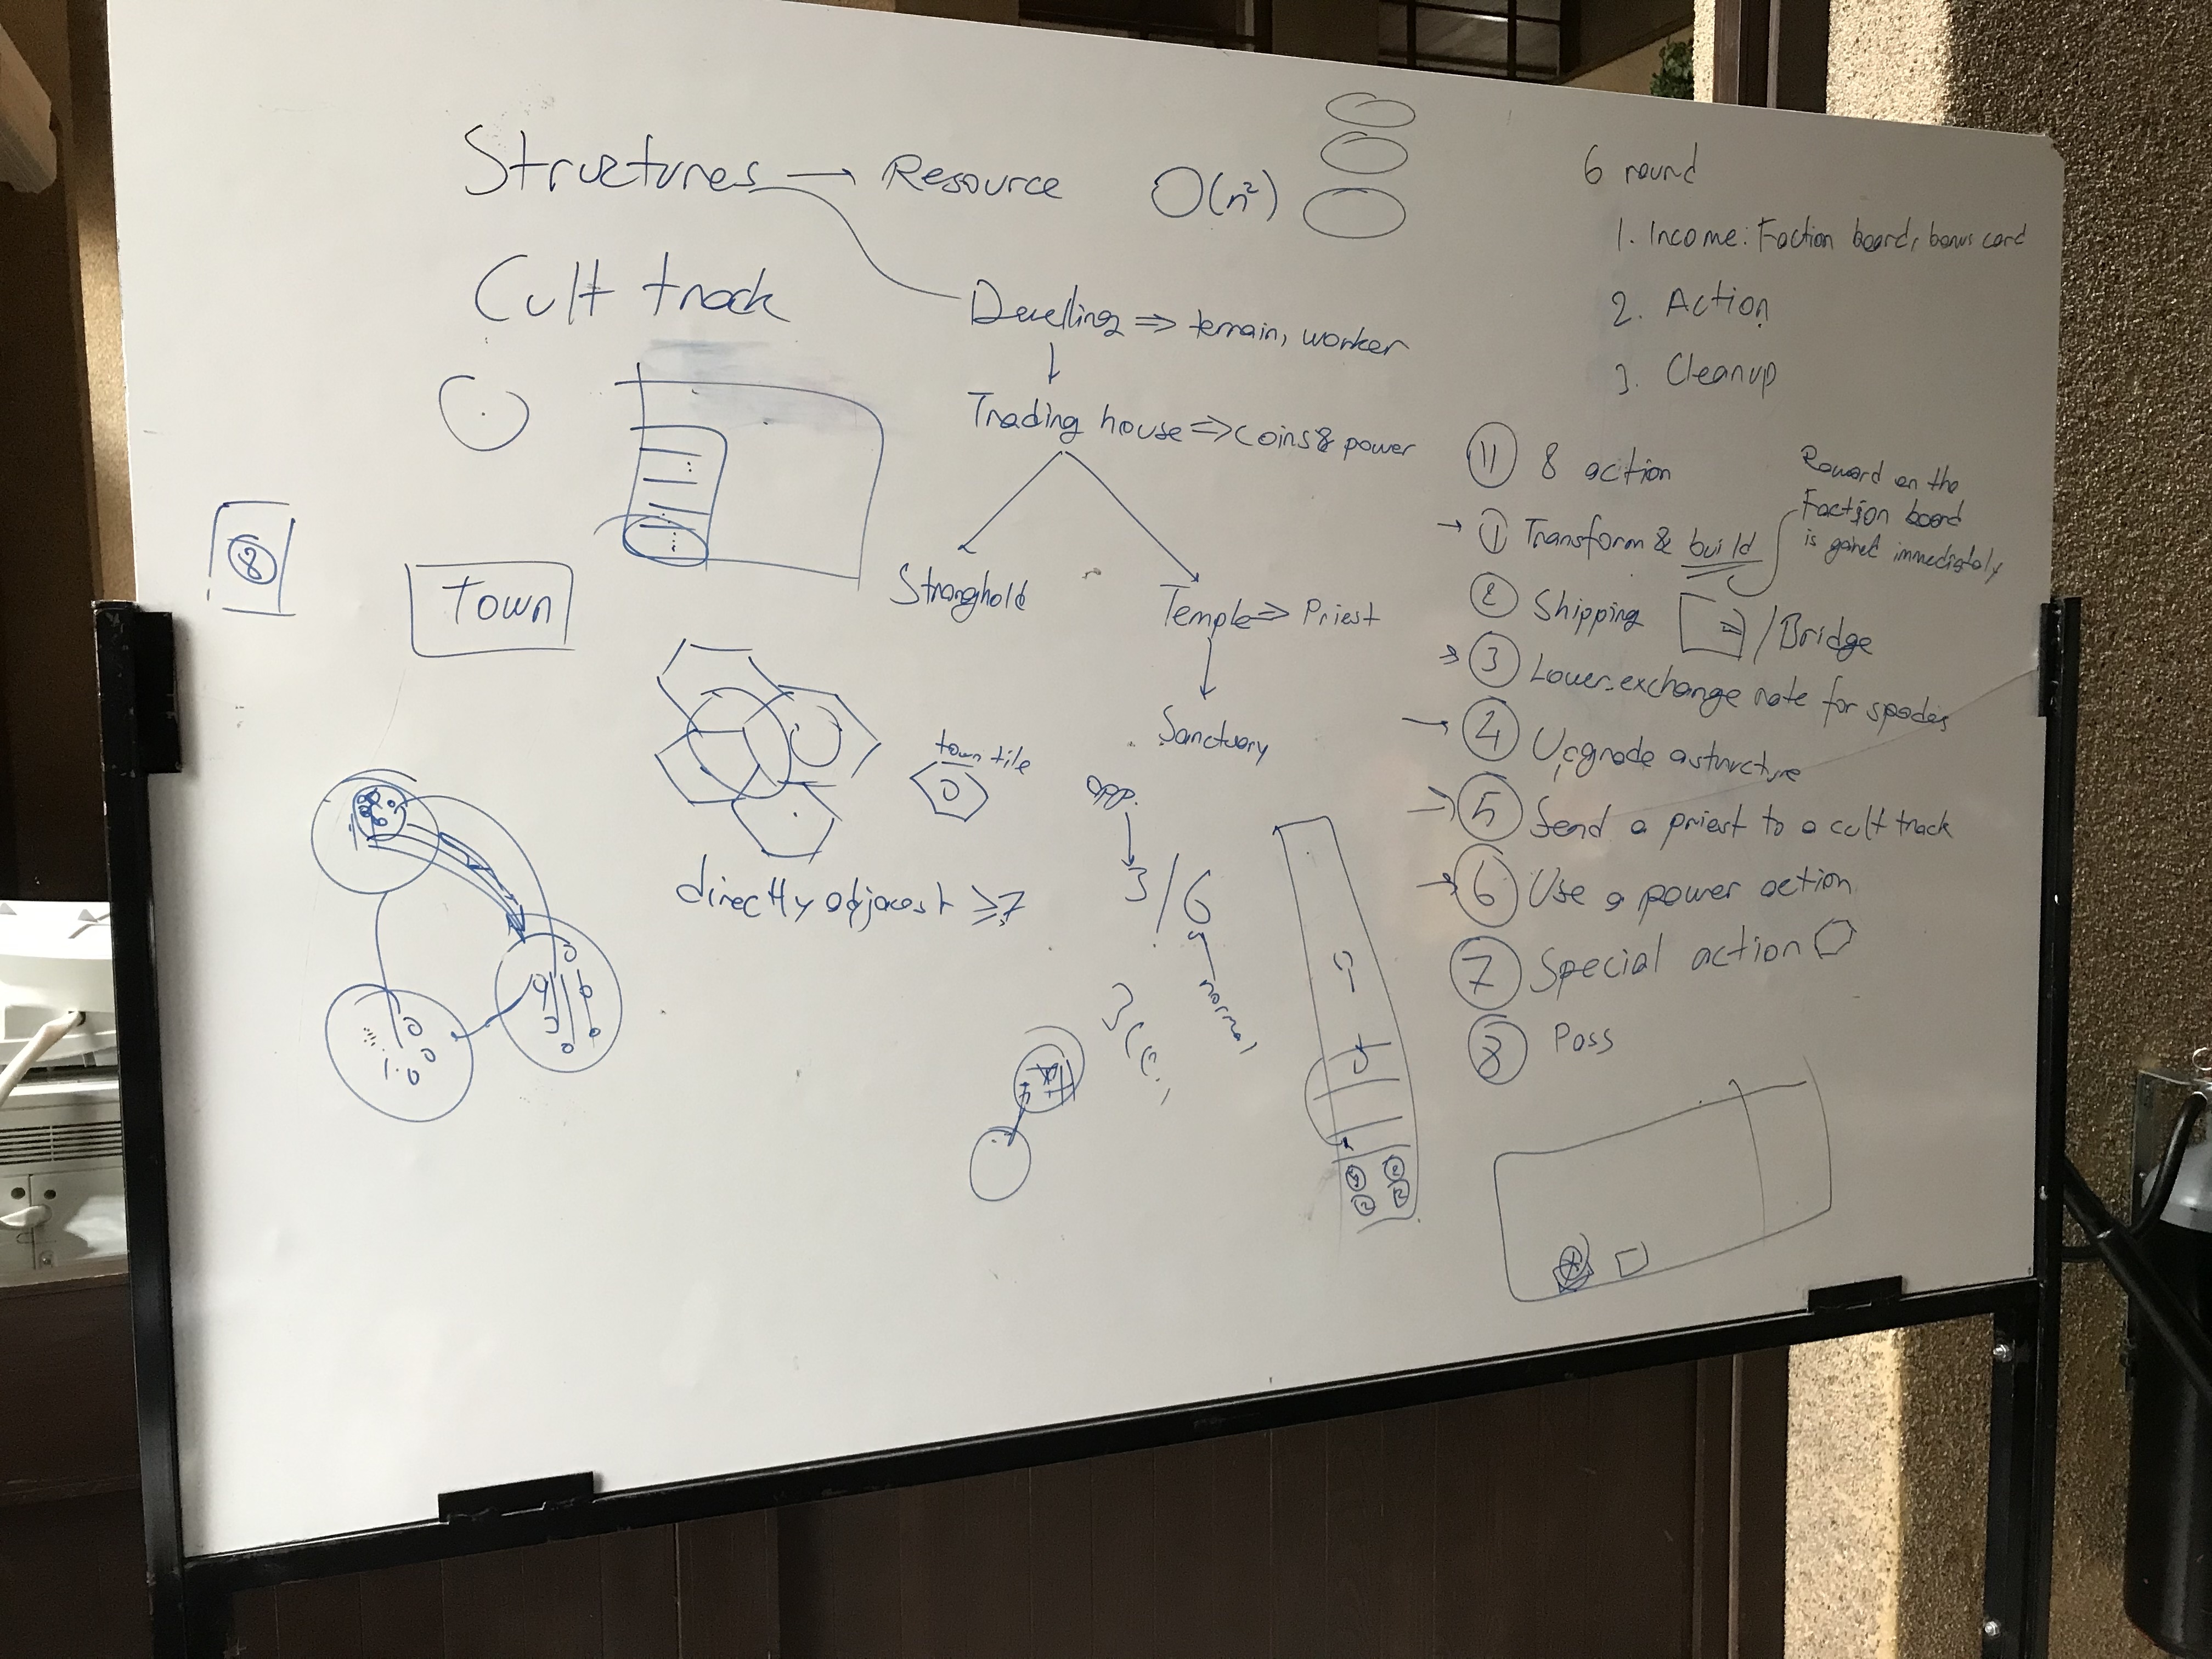 Structures → Resource
O(n²)
Cult track
Dwelling ⇒ terrain, worker
Trading house ⇒ coins & power
Stronghold
Temple ⇒ Priest
Sanctuary
8
Town
town tile
directly adjacent ≥7
opp.
3/6
normal
6 round
1. Income: Faction board, bonus card
2. Action
3. Cleanup
8 action
Reward on the
Faction board
is gained immediately
→ 1 Transform & build
2 Shipping
/Bridge
→ 3 Lower exchange rate for spades
→ 4 Upgrade a structure
→ 5 Send a priest to a cult track
→ 6 Use a power action
7 Special action
8 Pass